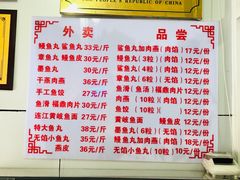 THE PEOPLE'S REPUBLIC OF CHINA
外卖
鳗鱼丸 鲨鱼丸 33元/斤
章鱼丸 鳗鱼皮 30元/斤
墨鱼丸 30元/斤
干蒸肉燕 36元/斤
手工鱼饺 27元/斤
鱼滑 福鼎肉片 30元/斤
连江黄岐鱼面 30元/斤
特大鱼丸 38元/斤
无馅小鱼丸 30元/斤
燕皮 36元/斤
品尝
鲨鱼丸加肉燕(肉馅)17元/份
鳗鱼丸(3粒)(肉馅)12元/份
章鱼丸(6粒)(无馅)12元/份
鱼滑(汤)福鼎肉片(汤)12元/份
肉燕(10粒)(肉馅)12元/份
鱼饺(10粒)(肉馅)12元/份
黄岐鱼面 12元/份
墨鱼丸(6粒)(无馅)12元/份
无馅小鱼丸加肉燕 12元/份
无馅小鱼丸(10粒) 12元/份